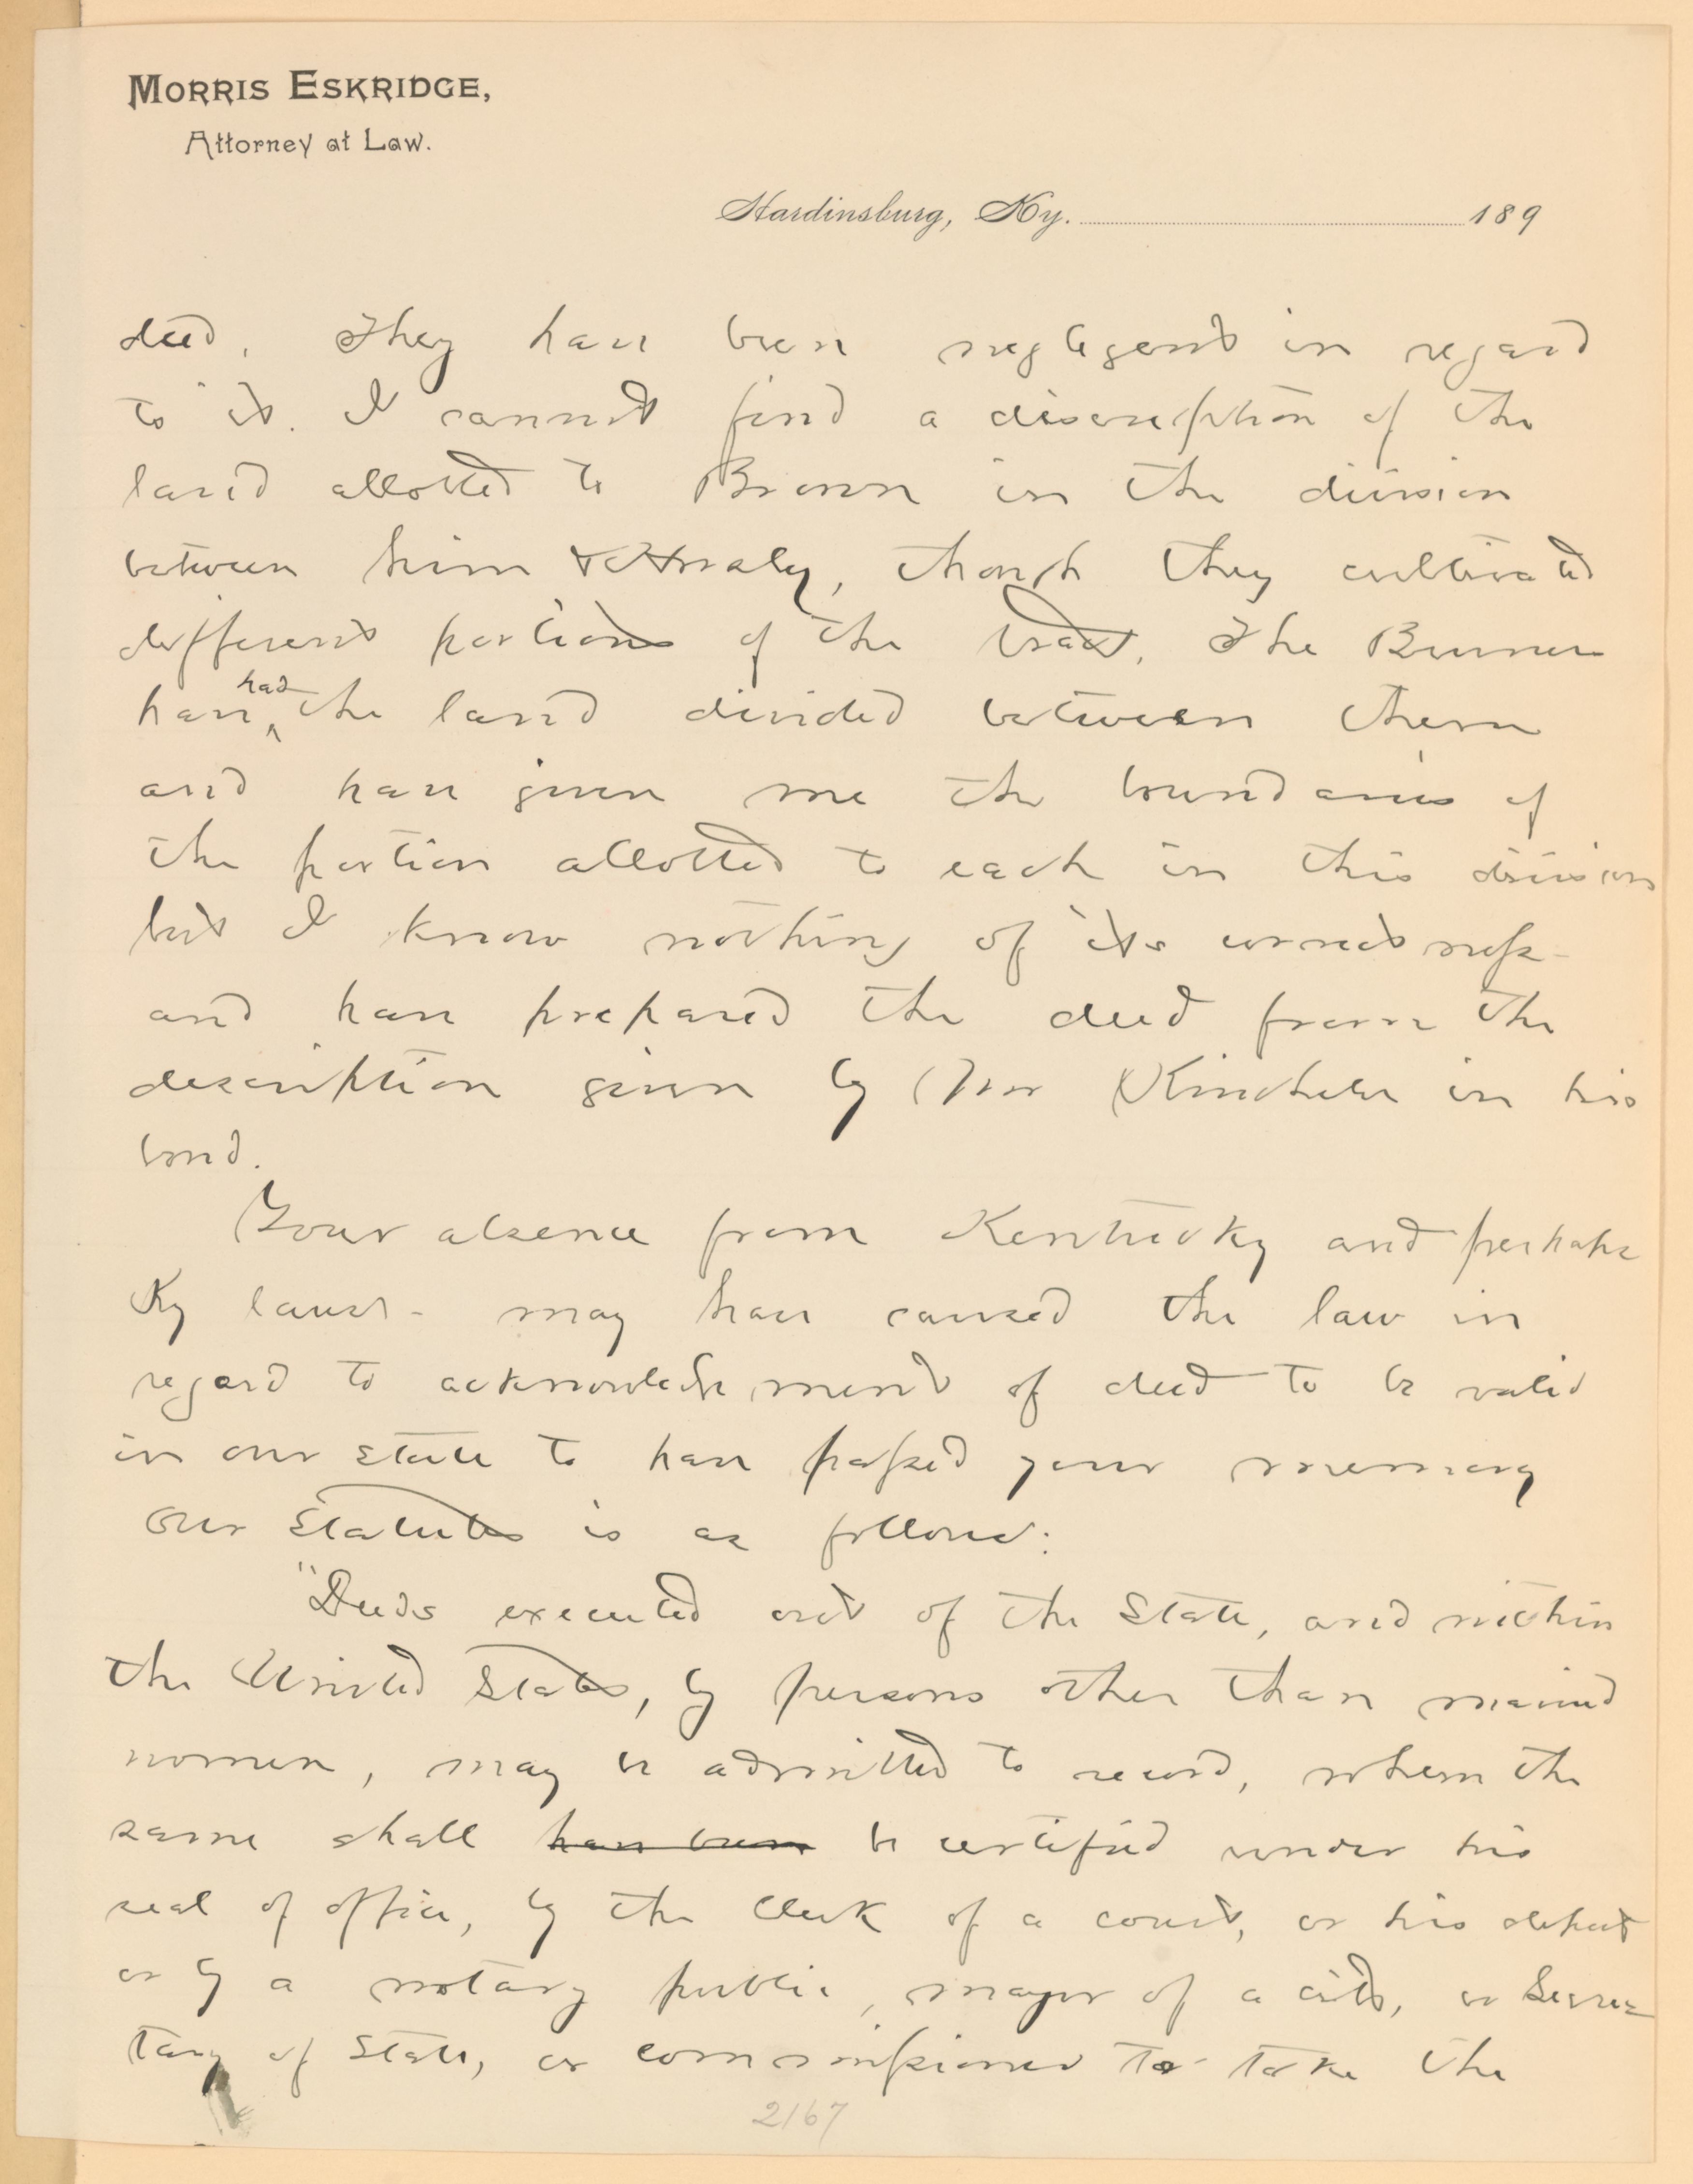 MORRIS ESKRIDGE,
Attorney at Law.
Hardinsburg, Ky. 189
deed. They have been negligent in regard
to it. I cannot find a description of the
land allotted to Brown in the division
between him &, though they cultivated
different portions of the tract. The
have had the land divided between them
and have given me the boundaries of
the portion allotted to each in this division
but I know nothing of its correctness
and have prepared the deed from the
description given by Mr Kincheloe in his
bond.
Your absence from Kentucky and perhaps
Ky laws - may have caused the law in
regard to acknowledgement of deed to be valid
in our state to have passed your memory
Our Statutes is as follows:
"Deeds executed out of the State, and within
the United States, by persons other than married
women, may be admitted to record, when the
same shall have been be certified under his
seal of office, by the Clerk of a court, or his deput
or by a notary public, mayor of a city, or Secre
tary of State, or commissioner to take the
2167